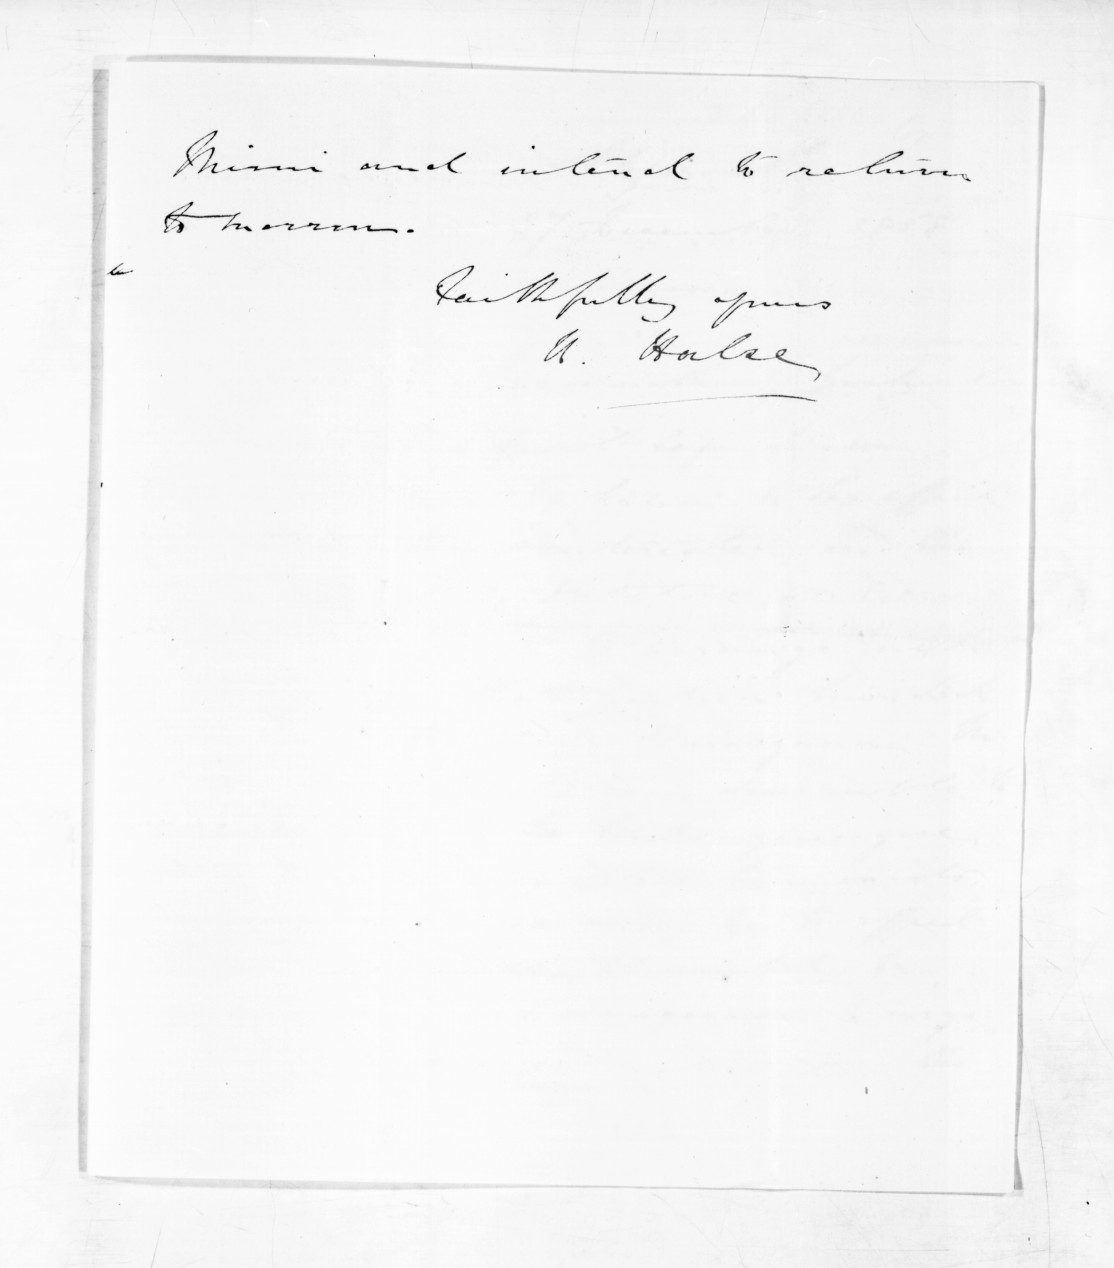 Mimi and intend to return
to morrow.
Faithfully yours
H. Halse